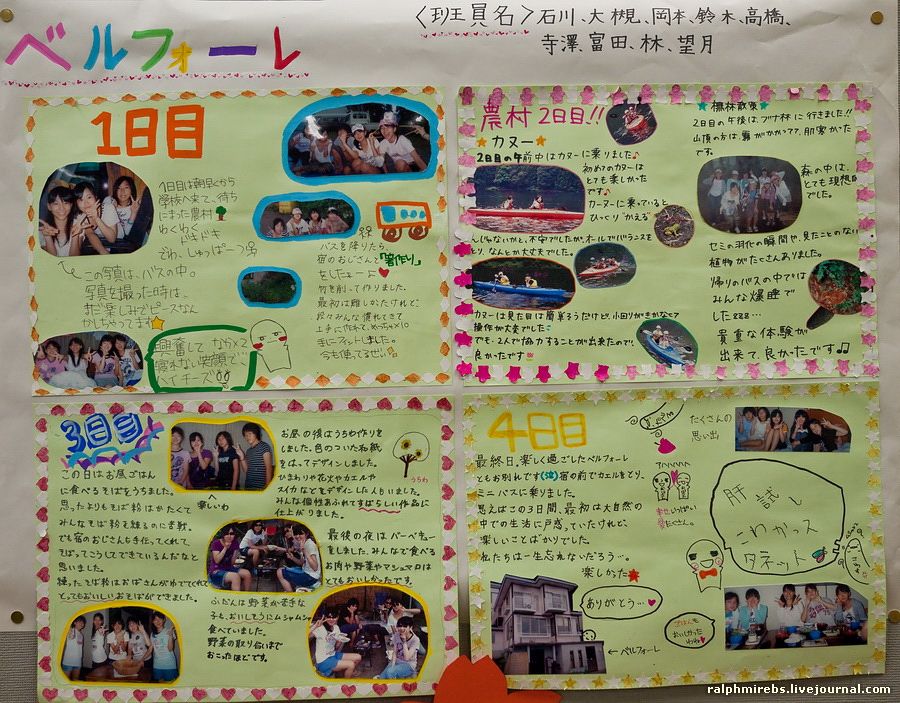 ベルフォーレ
〈班員名〉石川、大槻、岡本、鈴木、高橋、
寺澤、富田、林、望月
1日目
1日目は朝早くから
学校へ来て、待ち
にまった農村
わくわく
ドキドキ
でわ、しゅっぱーつ
この写真は、バスの中。
写真を撮った時は、
まだ楽しみでピースなん
かしちゃってます
興奮して なかっ×2
寝れない 笑顔で
ハイチーズ
バスを降りたら、
宿のおじさんと
「箸作り」
をしたよーよ
竹を削って作りました。
最初は難しかったけれど、
段々みんな慣れてきて
上手に作れて、めっちゃ×10
手にフィットしました。
今も使ってるぜぃ
農村2日目!!
カヌー
2日目の午前中はカヌーに乗りました♪
初めてのカヌーは
とても楽しかった
です♪
カヌーに乗っていると
ひっくり"かえる"
んじゃないかと、不安でしたが、オールでバランスを
とり、なんとか大丈夫でした。
カヌーは見た目は簡単そうだけど、小回りがきかなくて
操作が大変でした
でも、2人で協力することが出来たので、
良かったです
★橅林散策★
2日目の午後は、ブナ林に行きました!!
山頂の方は、霧がかかってて、肌寒かった
です。
森の中は、
とても理想的
でした。
セミの羽化の瞬間や、見たことのない
植物がたくさんありました。
帰りのバスの中では
みんな爆睡で
した zzz…
貴重な体験が
出来て、良かったです♫
3日目
この日はお昼ごはん
に食べるそばをうちました。
思ったよりもそば粉はかたくて
みんなそば粉を練るのに苦戦。
でも宿のおじさんも手伝ってくれて、
そばってこうしてできているんだなと
思いました。
練ったそば粉はおばさんがゆでてくれて
とってもおいしいおそばができました。
楽しいわ
お昼の後はうちわ作りを
しました。色のついた和紙
をはってデザインしました。
ひまわりや花火やカエルや
スイカなどをデザインした人もいました。
みんな個性あふれてすばらしい作品に
仕上がりました。
うちわ
最後の夜はバーベキュー
をしました。みんなで食べる
お肉や野菜やマシュマロは
とてもおいしかったです。
ふだんは野菜が苦手な
子も、おいしそうにムシャムシャ
食べていました。
野菜の取り合いまで
おこったほどです。
4日目
最終日、楽しく過ごしたベルフォーレ
ともお別れです(泣)宿の前でカエルをとり、
ミニバスに乗りました。
思えばこの3日間、最初は大自然の
中での生活に戸惑っていたけれど、
楽しいことばかりでした。
私たちは一生忘れないだろう…。
楽しかった★
ありがとう…♥
←ベルフォーレ
たくさんの
思い出
幸せいっぱい
愛たくさん。
肝試し
こわかっス
タネット
ごはんも
おいしかった
わね♥
ralphmirebs.livejournal.com